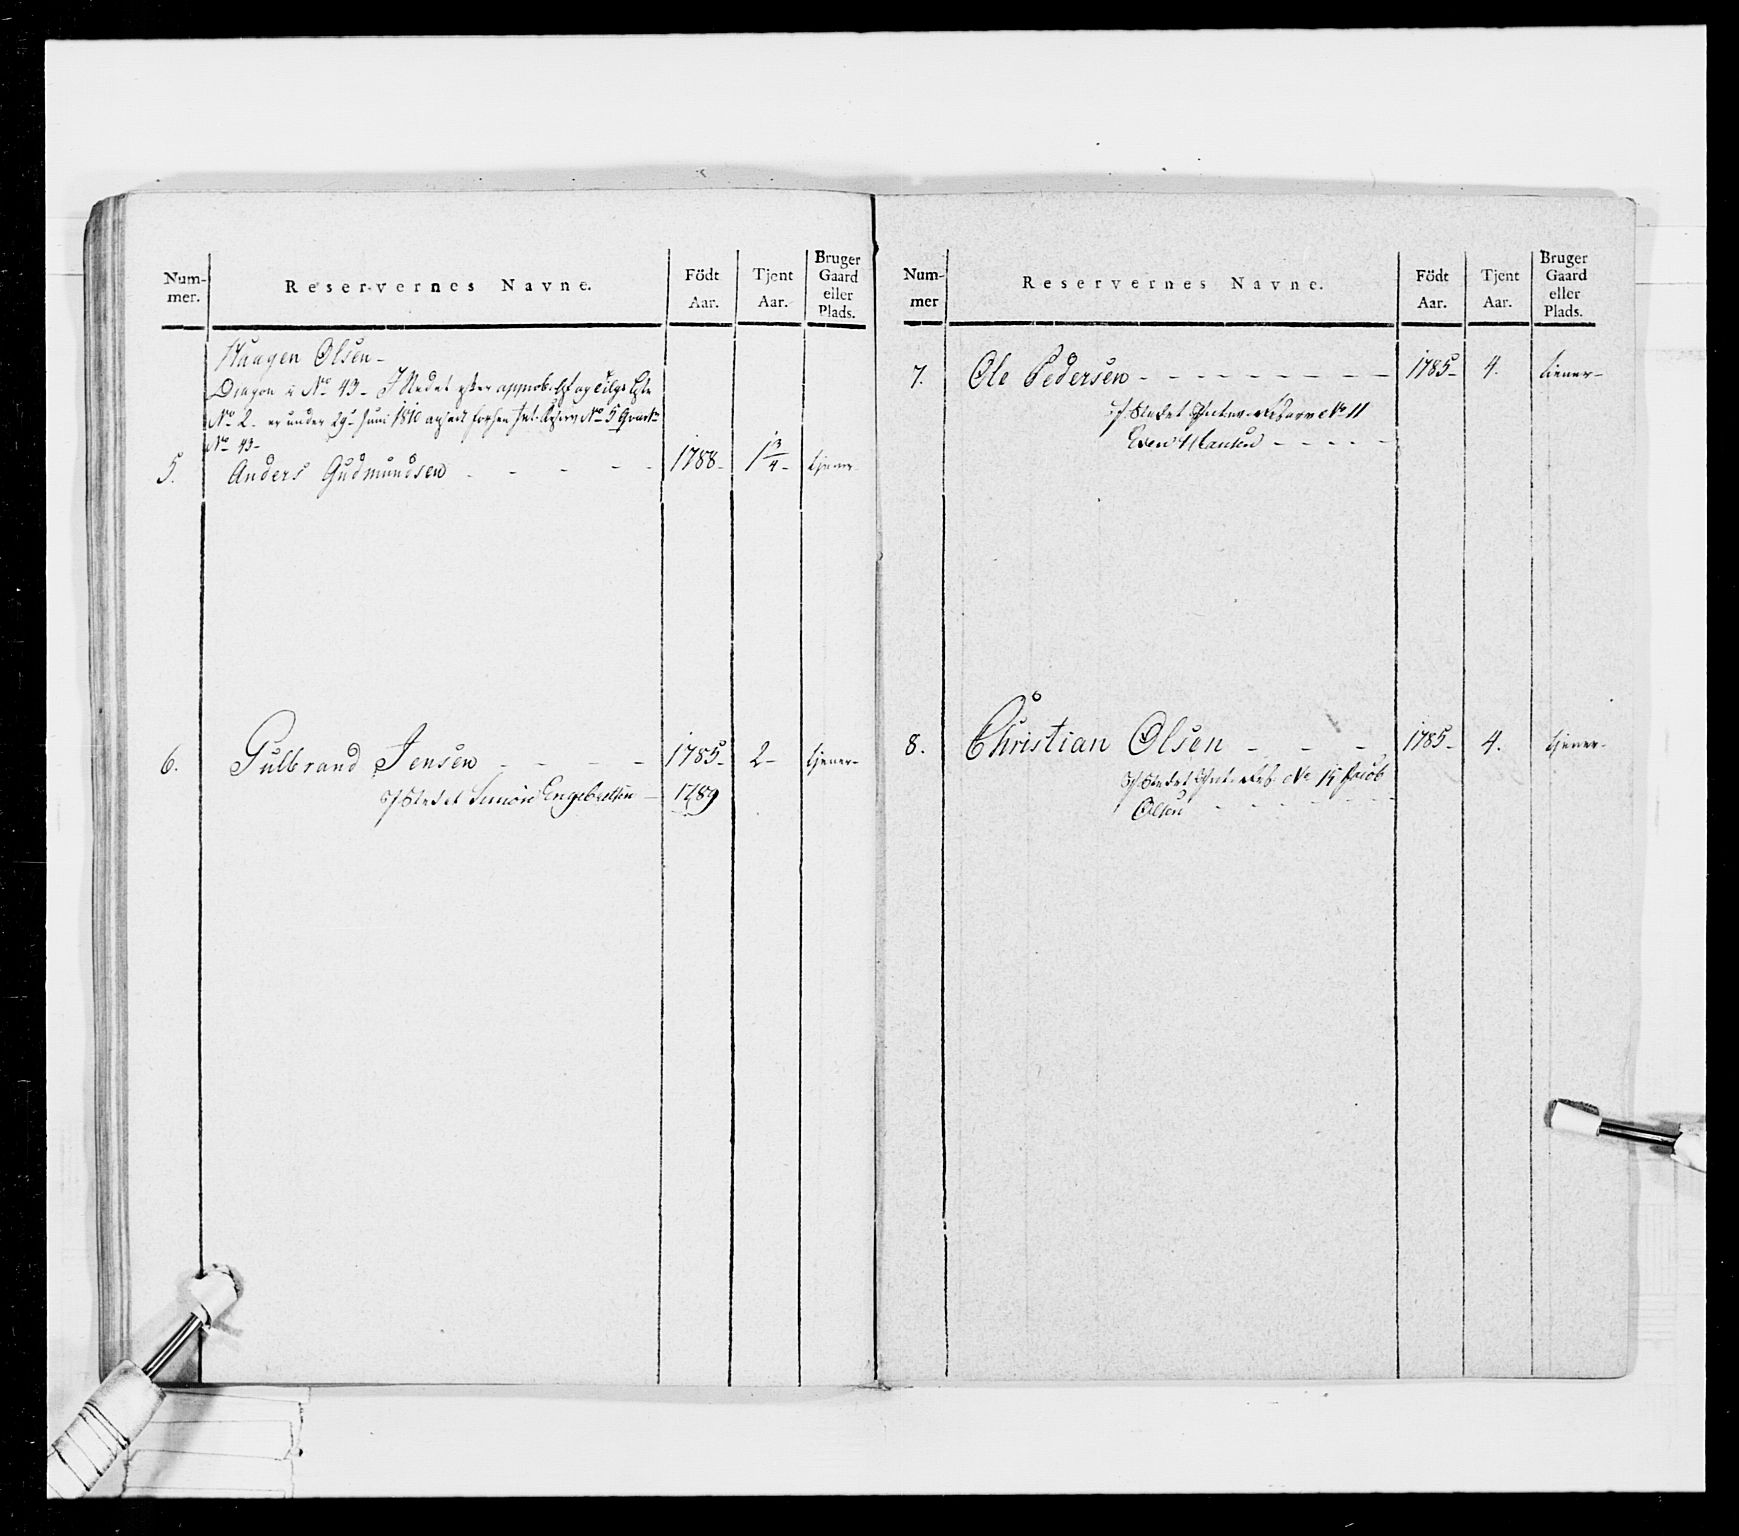 Num-
mer.
Reservernes Navne.
Födt
Aar.
Tjent
Aar.
Bruger
Gaard
eller
Plads.
Haagen Olsen -
Dragon i No 43 - I Stedet
No 2 - er under 29de Juni 1810 No 5
No 43 -
5. Anders Gudmundsen - - - - - 1788 - 1 3/4 - tjener
6. Gulbrand Jensen - - - - 1785 - 2 - tjener -
I Stedet Simon Engebretsen - 1789
Num-
mer
Reservernes Navne.
Födt
Aar.
Tjent
Aar.
Bruger
Gaard
eller
Plads.
7. Ole Pedersen - - - - - - - - 1785 - 4. tiener -
I Stedet No 11
Even Hansen - - - - -
8. Christian Olsen - - - 1785 - 4. tjener -
I Stedet No 15 Jacob
Olsen - - - - - -